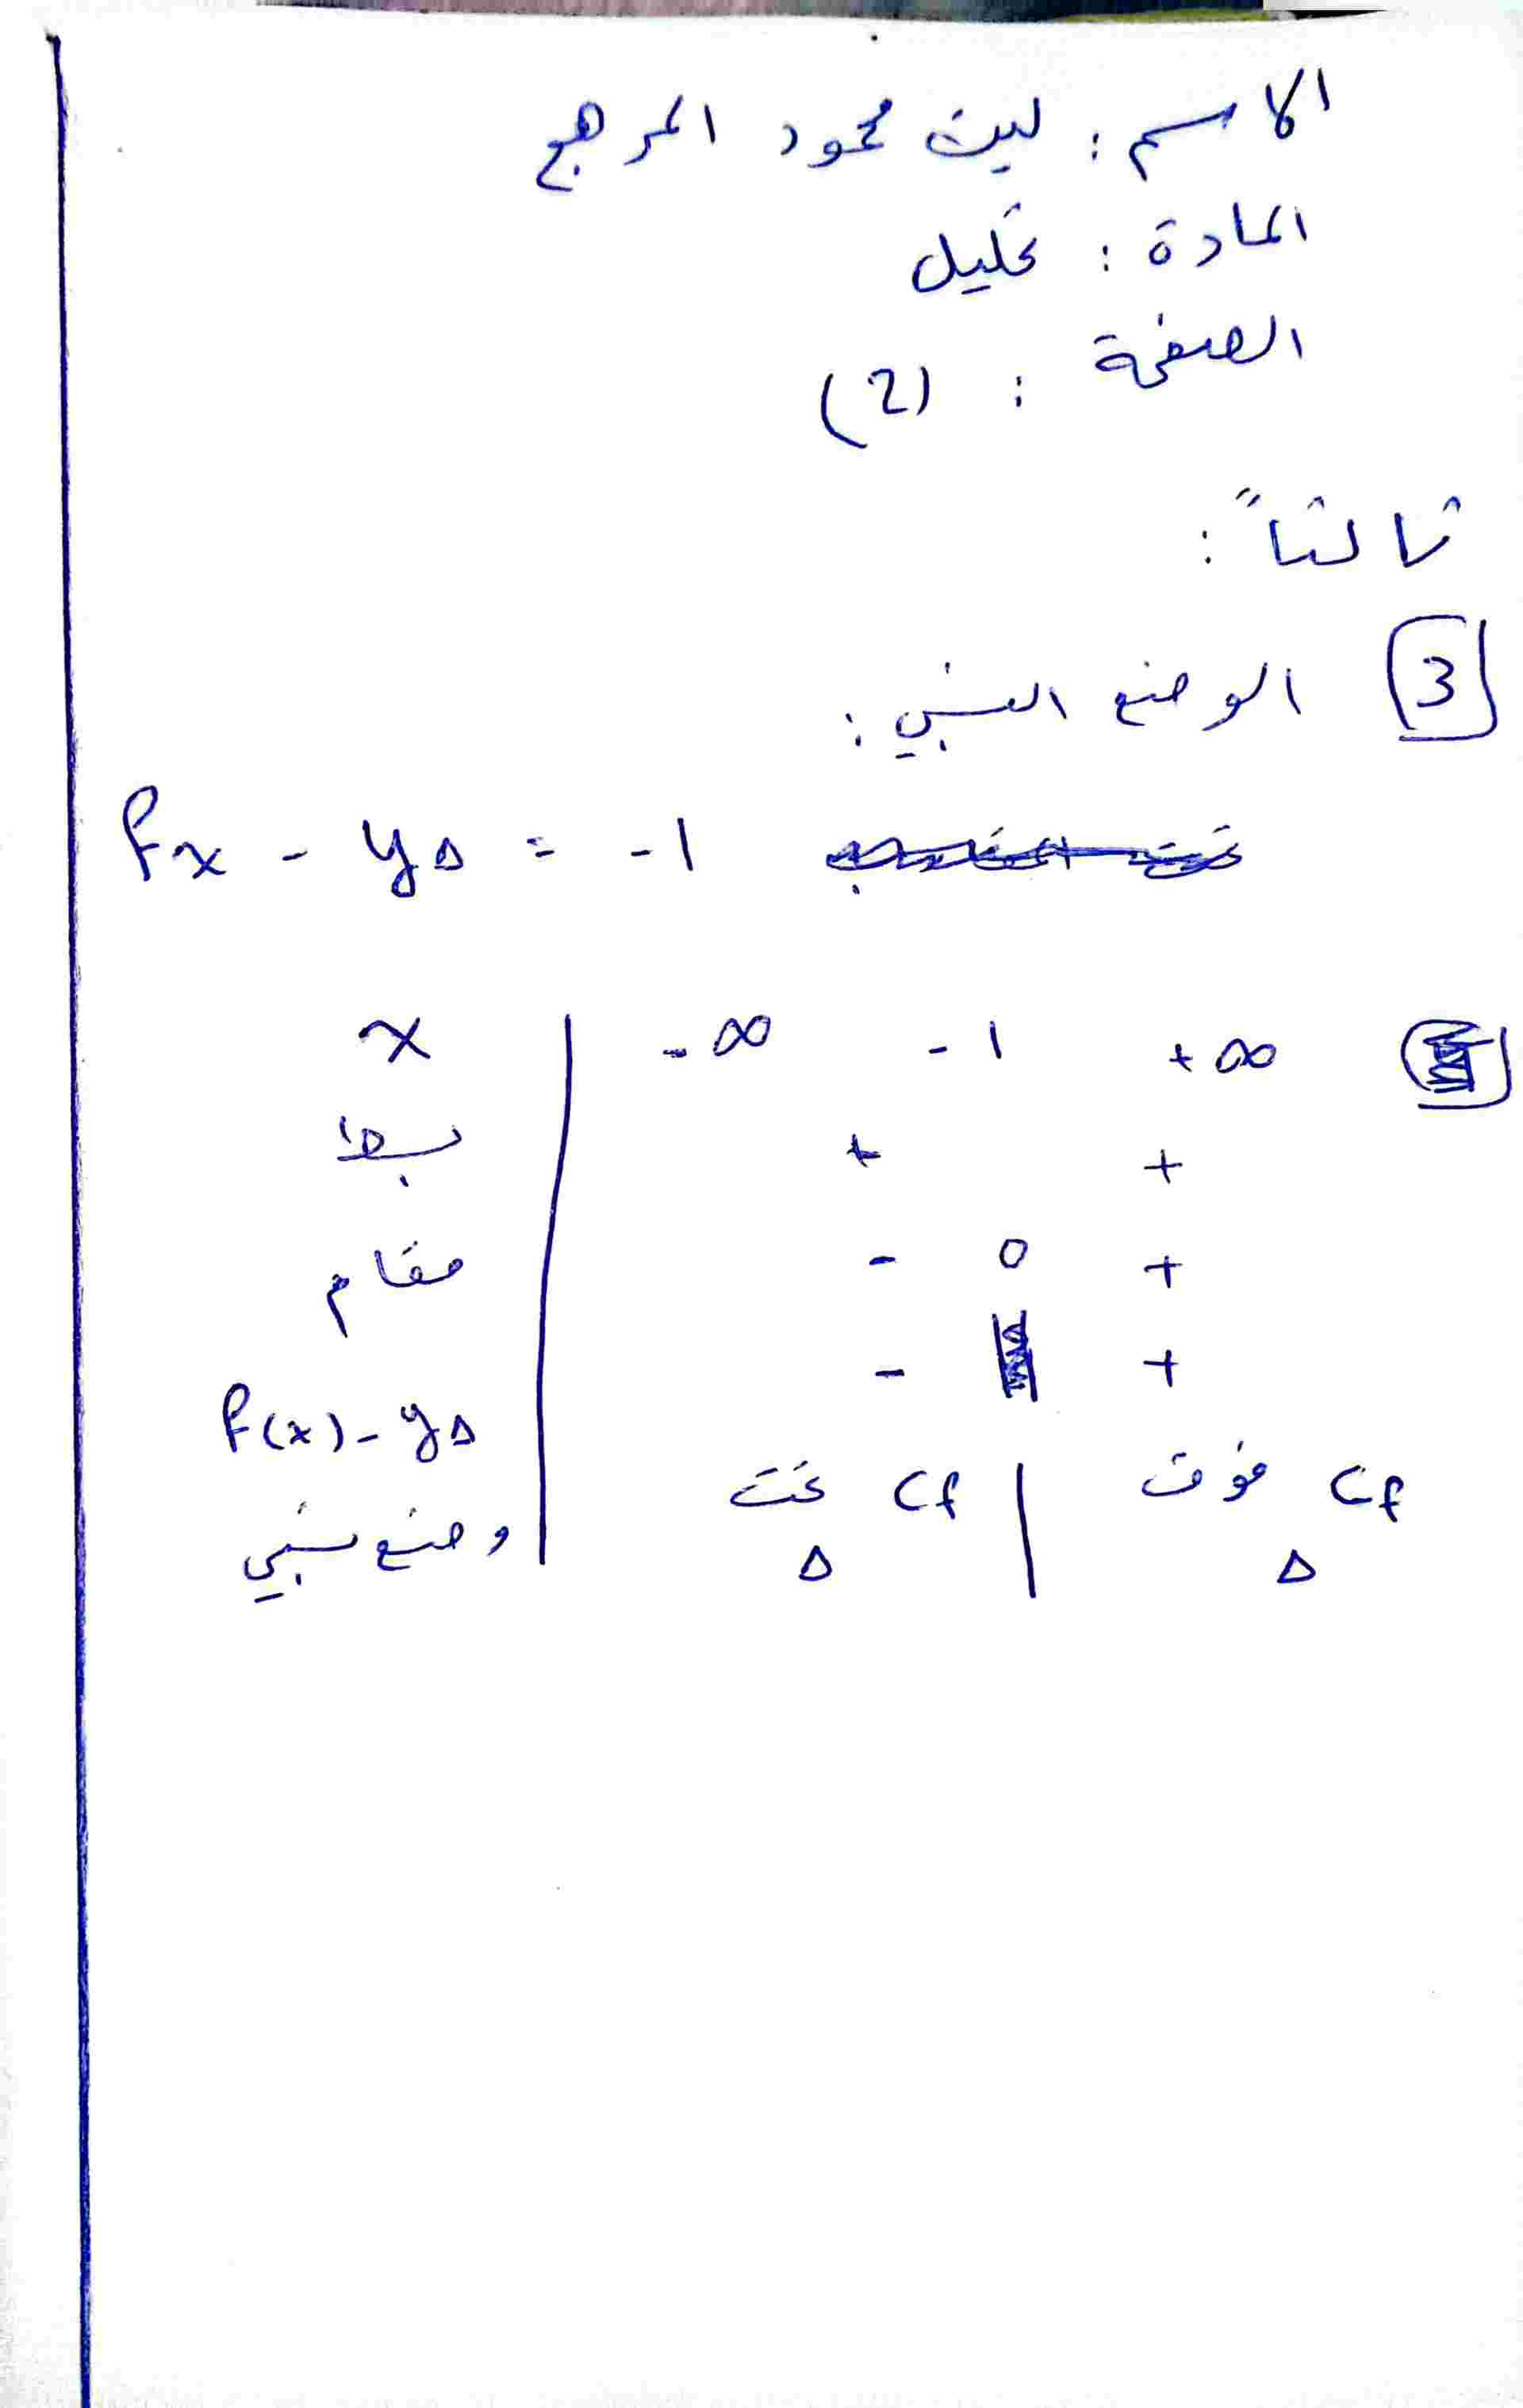 الاسم : ليث محمود المرهج
المادة : تحليل
الصفحة : (2)
ثالثاً :
3 الوضع النسبي :
fx - yΔ = -1
x | -∞ -1 +∞
بسط | + +
مقام | - 0 +
f(x) - yΔ | - || +
وضع نسبي | Cf تحت Δ | Cf فوق Δ